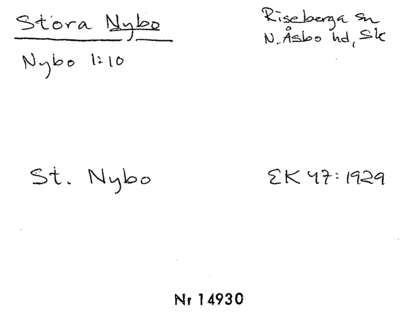 Stora Nybo
Riseberga sn
N. Åsbo hd, Sk
Nybo 1:10
St. Nybo
EK 47:1929
Nr 14930